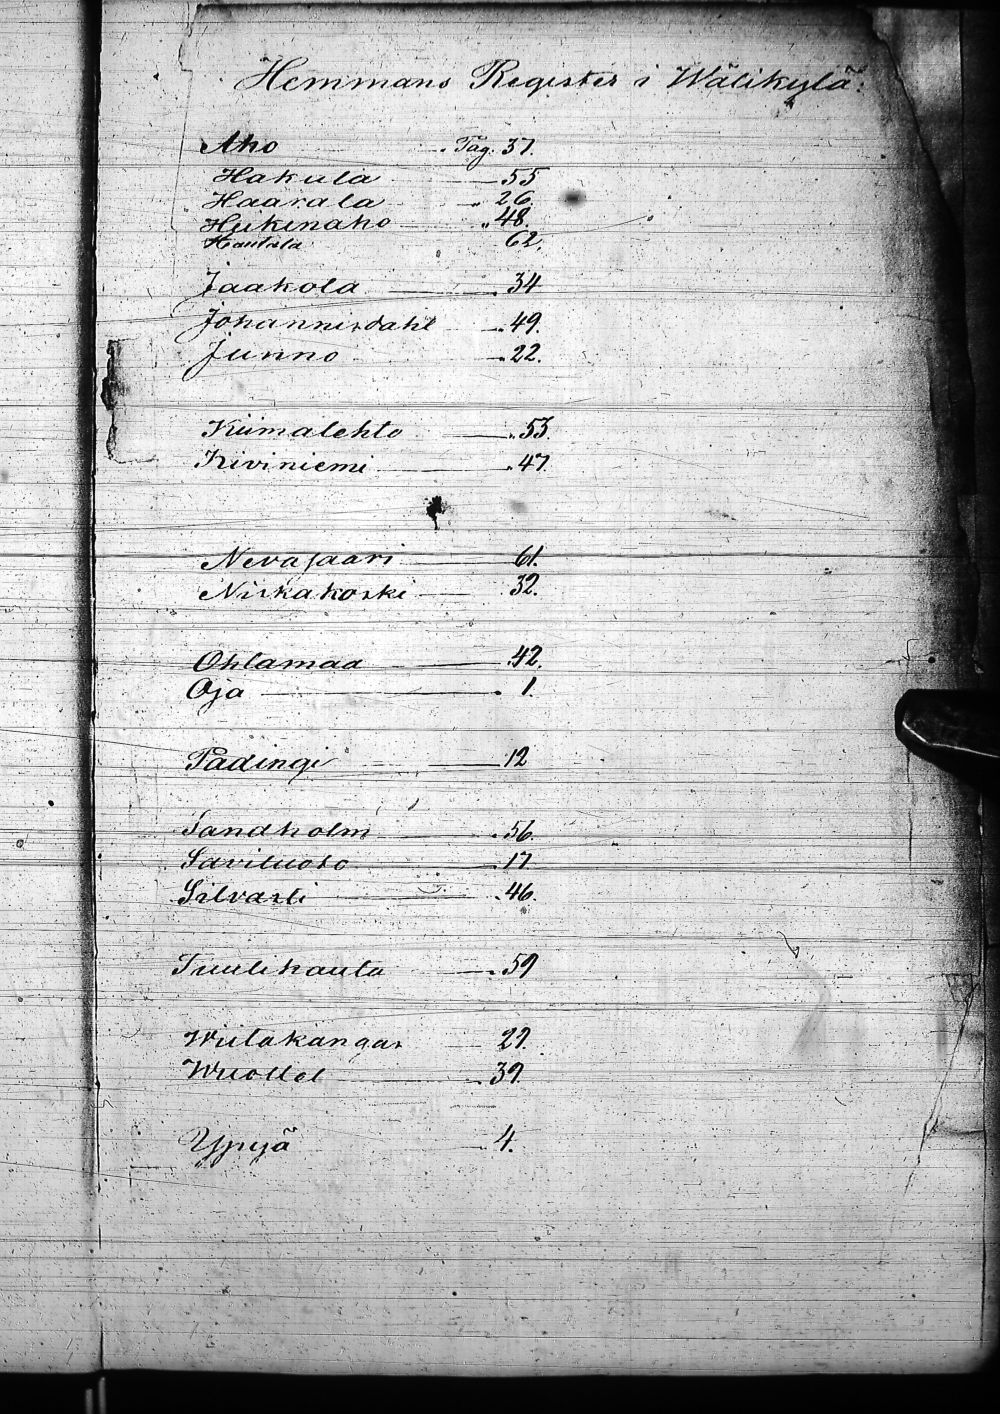 Hemmans Register i Wälikylä.
Aho Pag. 37.
Hakula 55
Haarala 26.
Heikinaho 48.
Hautala 62.
Jaakola 34
Johannisdahl 49.
Junno 22.
Kiimalehto 53.
Kiviniemi 47.
Nevasaari 61.
Niskakoski 32.
Ohlamaa 42.
Oja 1.
Pådingi 12
Sandholm 56.
Saviluoto 17.
Silvasti 46.
Tuulihauta 59
Wiitakangas
Wuollet
Ypyä 4.